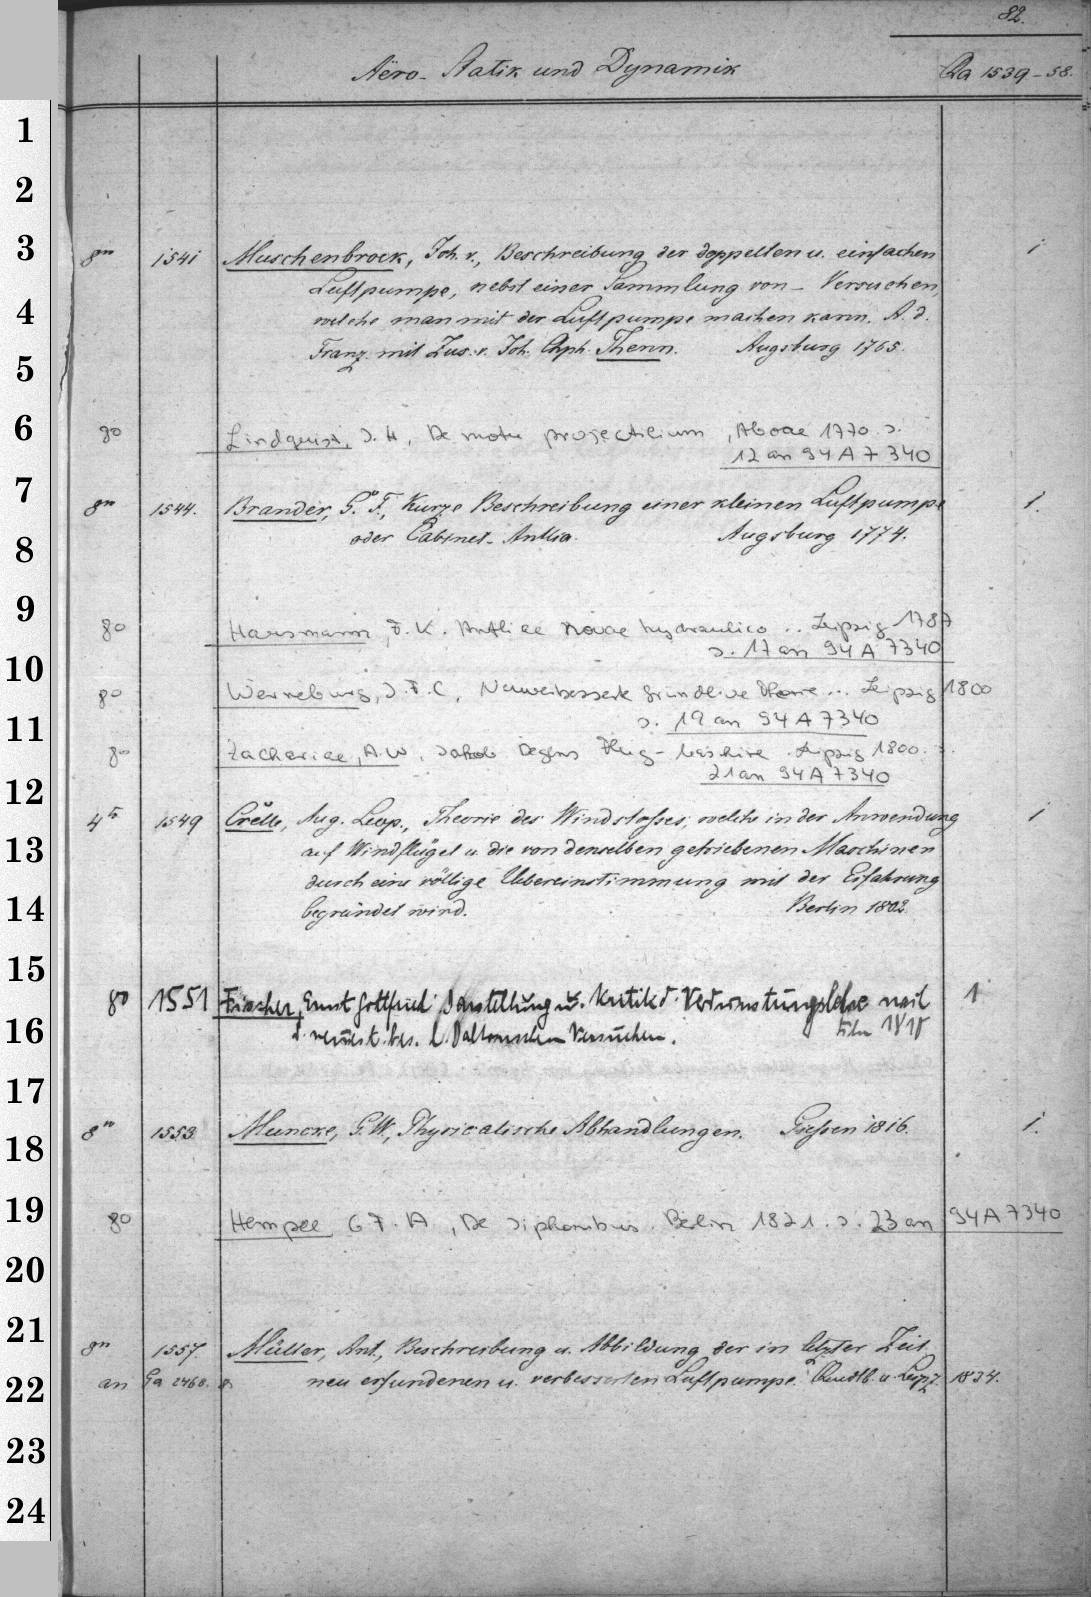 82.
Aëro-Statik und Dynamik Qa 1539-58.
1
2
3 8° 1541 Muschenbroek, Joh. v., Beschreibung der doppelten u. einfachen 1
Luftpumpe, nebst einer Sammlung von Versuchen,
4 welche man mit der Luftpumpe machen kann. A. d.
5 Franz. mit Zus. v. Joh. Chph. Thenn. Augsburg 1765.
6 80 Lindquist, J. H, De motu projectilium, Aboae 1770 s.
12 an 94 A 7340
7 8° 1544. Brander, G. F., Kurze Beschreibung einer kleinen Luftpumpe 1.
8 oder Cabinet-Antlia. Augsburg 1774.
9 80 , F. K. Antliae novae hydraulico .. Leipzig 1787
s. 17 an 94 A 7340
10 80 Werneburg, J. F. C, ... Leipzig 1800
11 s. 19 an 94 A 7340
80 Zachariae, A. W, Flug- Leipzig 1800. s.
12 21 an 94 A 7340
4to 1549 Crelle, Aug. Leop., Theorie des Windstoßes, welche in der Anwendung 1
13 auf Windflügel u. die von denselben getriebenen Maschinen
durch eine völlige Uebereinstimmung mit der Erfahrung
14 begründet wird. Berlin 1802
15 80 1551 Fischer, Ernst Gottfried Darstellung u. Kritik d. Verdunstungslehre nach 1
16 d. neuest. bes. d. Daltonschen Versuchen. 1818
17
18 8° 1553. Muncke, G. W, Physicalische Abhandlungen. Giessen 1816. 1.
19 80 Hempel G F. A, De siphonibus. Berlin 1821. s. 23 an 94 A 7340
20
21 8° 1557. Müller, Ant., Beschreibung u. Abbildung der in letzter Zeit
22 an Ga 2468. 8. neu erfundenen u. verbesserten Luftpumpe. Quedlb. u. Leipz. 1834.
23
24